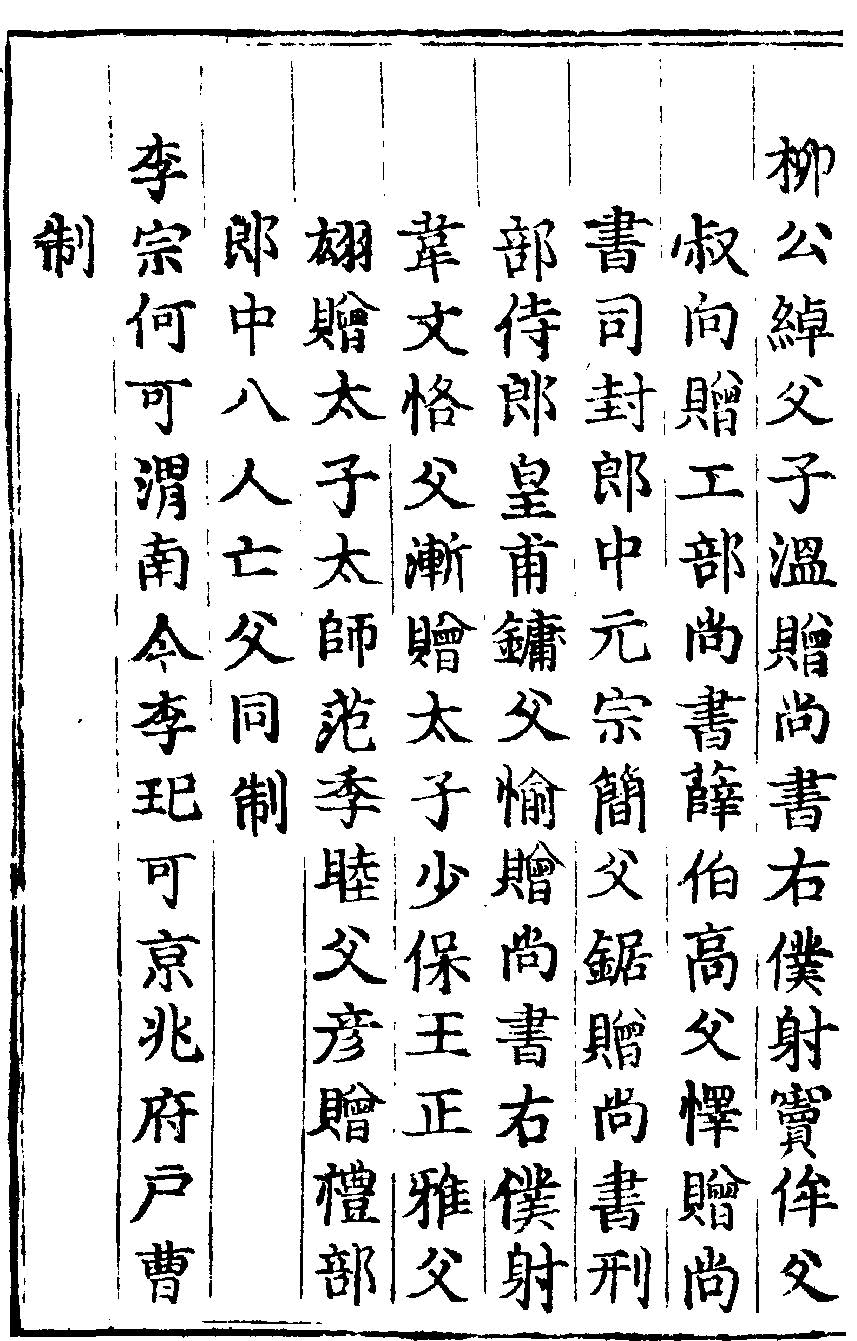 柳公綽父子溫贈尚書右僕射竇侔父
叔向贈工部尚書薛伯高父懌贈尚
書司封郎中元宗簡父鋸贈尚書刑
部侍郎皇甫鏞父愉贈尚書右僕射
韋文恪父漸贈太子少保王正雅父
翃贈太子太師范季睦父彥贈禮部
郎中八人亡父同制
李宗何可渭南令李玘可京兆府戶曹
制